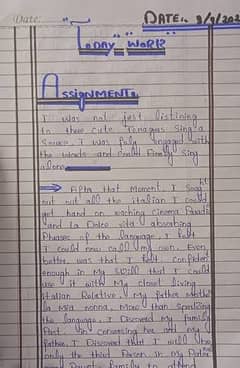 Date:
DATE.. 8/9/202
TODAY WORK
ASSIGNMENT.
I was not just listining
to these cute Tenagus Sing a
I was fuly engaged with
the words and could finaly sing
alone
After that Moment, I
out all the italian I could
get hand on waching cinema Paradi
and la Dolce vita absorbing
Phases of the language. I felt
I could now call my own. Even
better, was that I felt Confident
enough in My skill that I could
use it with My closet living
italian Relative. My father Mother
la Mia nonna. More than
the language. I discoved My family
Past. In conversing her and my
father. I Discoved that I will
only the third Person in My
family to attend